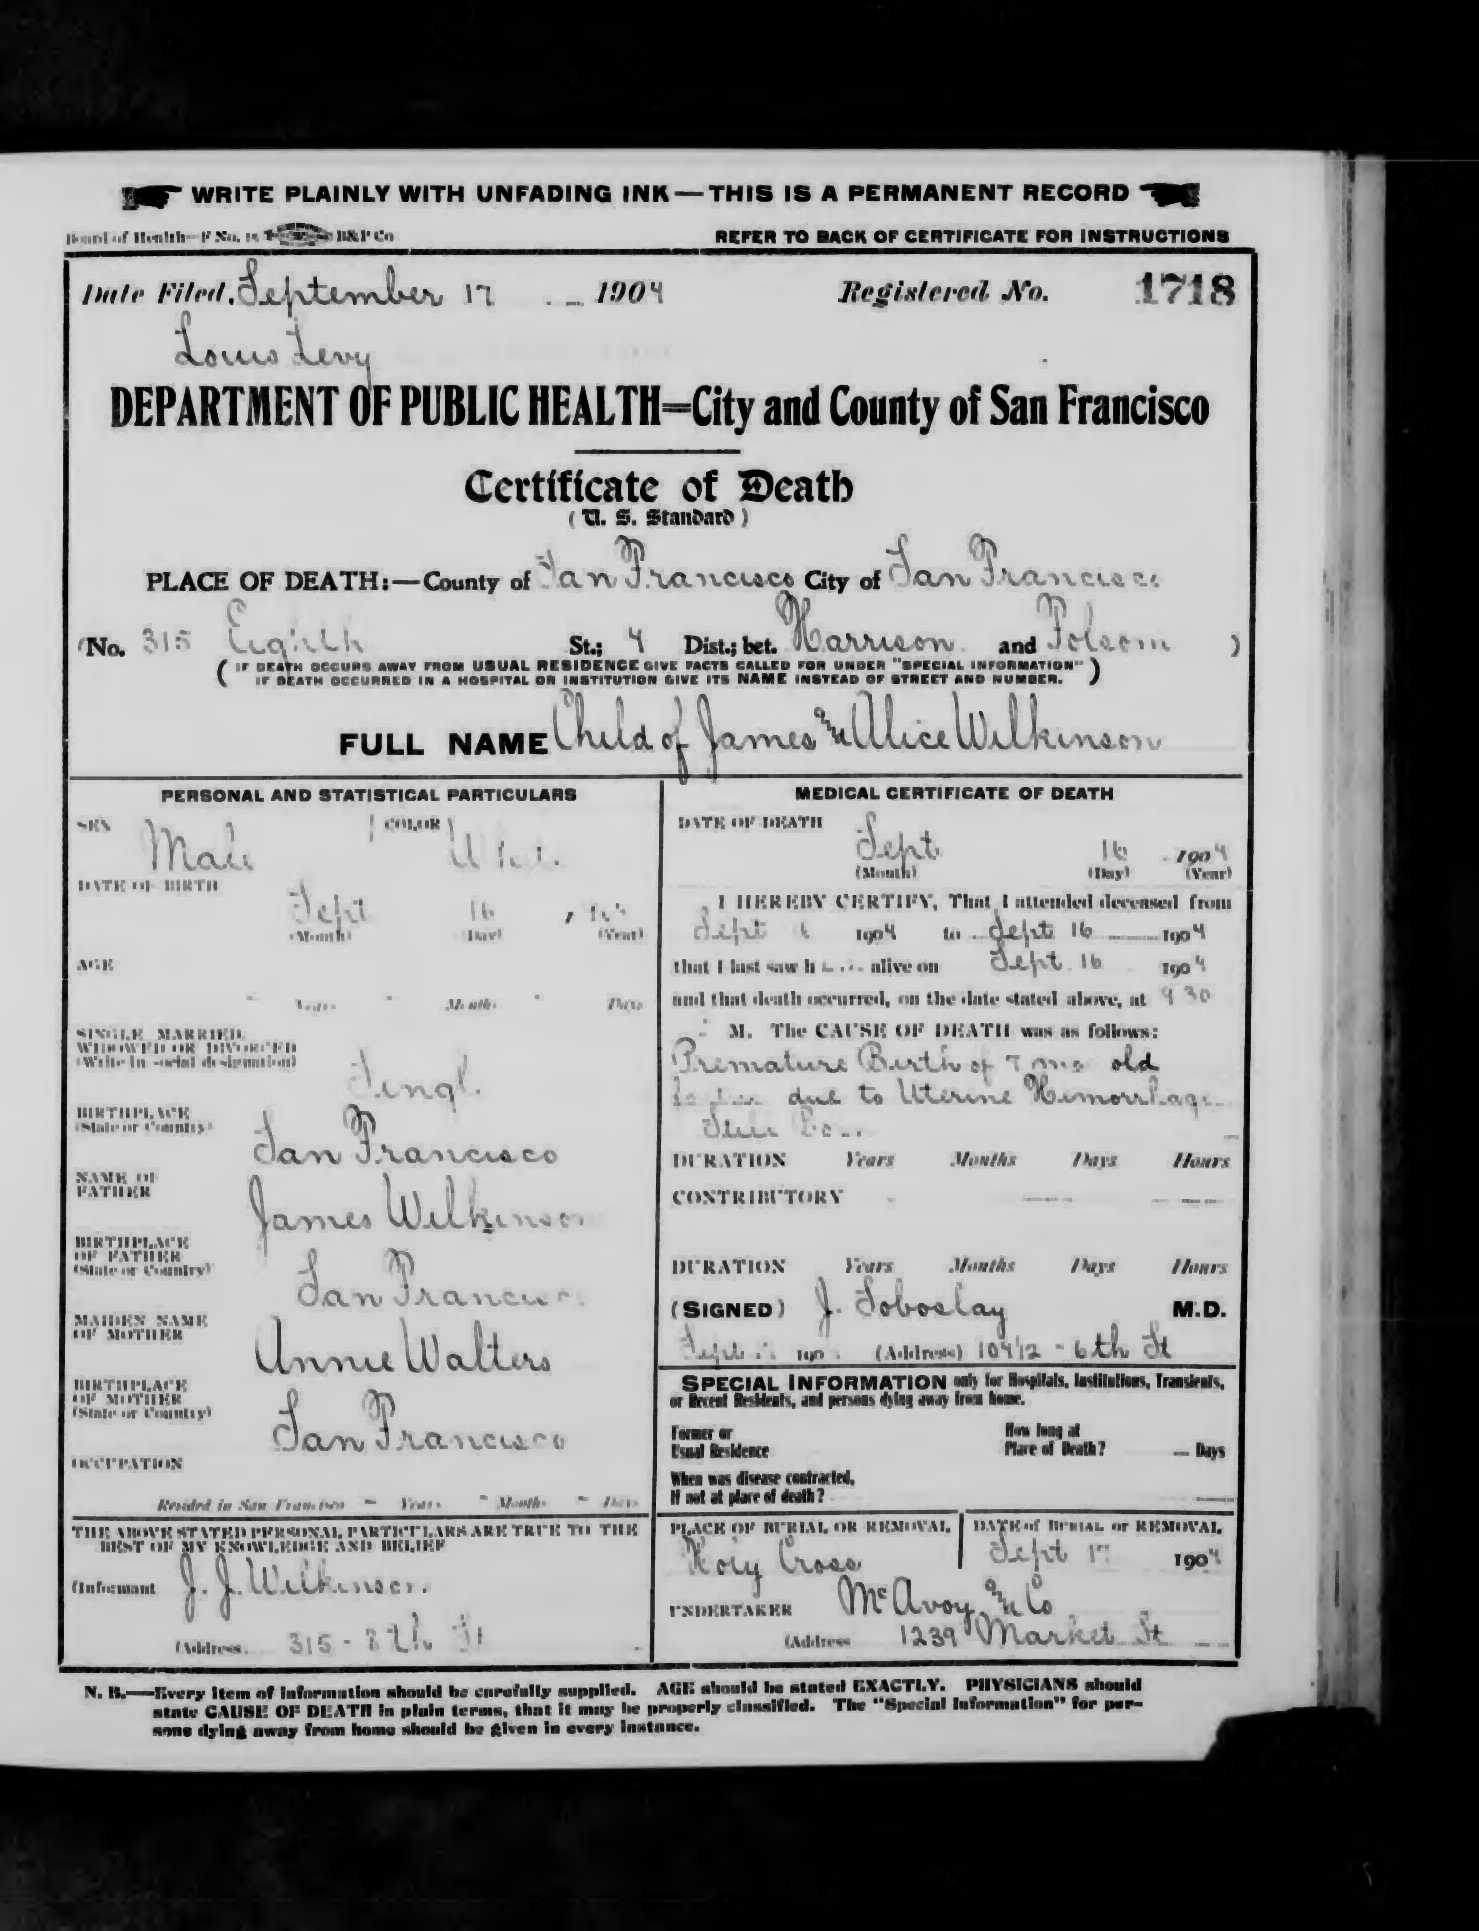 WRITE PLAINLY WITH UNFADING INK—THIS IS A PERMANENT RECORD
Board of Health—F No. 15 B&P Co
REFER TO BACK OF CERTIFICATE FOR INSTRUCTIONS
Date Filed, September 17 1904 Registered No. 1718
Louis Levy
DEPARTMENT OF PUBLIC HEALTH=City and County of San Francisco
Certificate of Death
(U. S. Standard)
PLACE OF DEATH:—County of San Francisco City of San Francisco
(No. 315 Eighth St.; 4 Dist.; bet. Harrison and Folsom )
( IF DEATH OCCURS AWAY FROM USUAL RESIDENCE GIVE FACTS CALLED FOR UNDER "SPECIAL INFORMATION" )
IF DEATH OCCURRED IN A HOSPITAL OR INSTITUTION GIVE ITS NAME INSTEAD OF STREET AND NUMBER.
FULL NAME Child of James and Alice Wilkinson
PERSONAL AND STATISTICAL PARTICULARS
SEX Male COLOR
DATE OF BIRTH
Sept 16
(Month) (Day) (Year)
AGE
Years Months Days
SINGLE, MARRIED,
WIDOWED OR DIVORCED
(Write in social designation)
Single
BIRTHPLACE
(State or Country)
San Francisco
NAME OF
FATHER
James Wilkinson
BIRTHPLACE
OF FATHER
(State or Country)
San Francisco
MAIDEN NAME
OF MOTHER
Annie Walters
BIRTHPLACE
OF MOTHER
(State or Country)
San Francisco
OCCUPATION
Resided in San Francisco - Years - Months - Days
THE ABOVE STATED PERSONAL PARTICULARS ARE TRUE TO THE
BEST OF MY KNOWLEDGE AND BELIEF
(Informant J. J. Wilkinson.
(Address 315 - 8th St
MEDICAL CERTIFICATE OF DEATH
DATE OF DEATH
Sept 16 1904
(Month) (Day) (Year)
I HEREBY CERTIFY, That I attended deceased from
Sept 1904 to Sept 16 1904
that I last saw h alive on Sept 16 1904
and that death occurred, on the date stated above, at 9 30
M. The CAUSE OF DEATH was as follows:
Premature Birth of 7 mo old
due to Uterine Hemorrhage
DURATION Years Months Days Hours
CONTRIBUTORY
DURATION Years Months Days Hours
(SIGNED) J. Soboslay M.D.
Sept 190 (Address) 104 1/2 - 6th St
SPECIAL INFORMATION only for Hospitals, Institutions, Transients,
or Recent Residents, and persons dying away from home.
Former or
Usual Residence
How long at
Place of Death? Days
When was disease contracted,
If not at place of death?
PLACE OF BURIAL OR REMOVAL
Holy Cross
DATE of BURIAL or REMOVAL
Sept 17 1904
UNDERTAKER McAvoy and Co
(Address 1239 Market St
N. B.—Every item of information should be carefully supplied. AGE should be stated EXACTLY. PHYSICIANS should
state CAUSE OF DEATH in plain terms, that it may be properly classified. The "Special Information" for per-
sons dying away from home should be given in every instance.